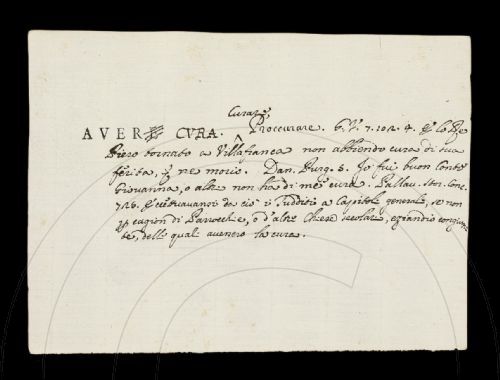 Curare,
AVERE CURA. Proccurare. G. V. 7. 102. 4. E lo Re
Piero tornato a Villafranca non abbiendo cura di sua
ferita, si ne morìo. Dan. Purg. 5. Io fui buon Conte
Giovanna, o altre non ha di me cura. Pallav. Stor. Conc.
726. da ciò i Sudditi a Capitoli generali, se non
p cagion di Parrocchie, o d'altre Chiese secolari, eziandio congiunte
delle quali avenero la cura.